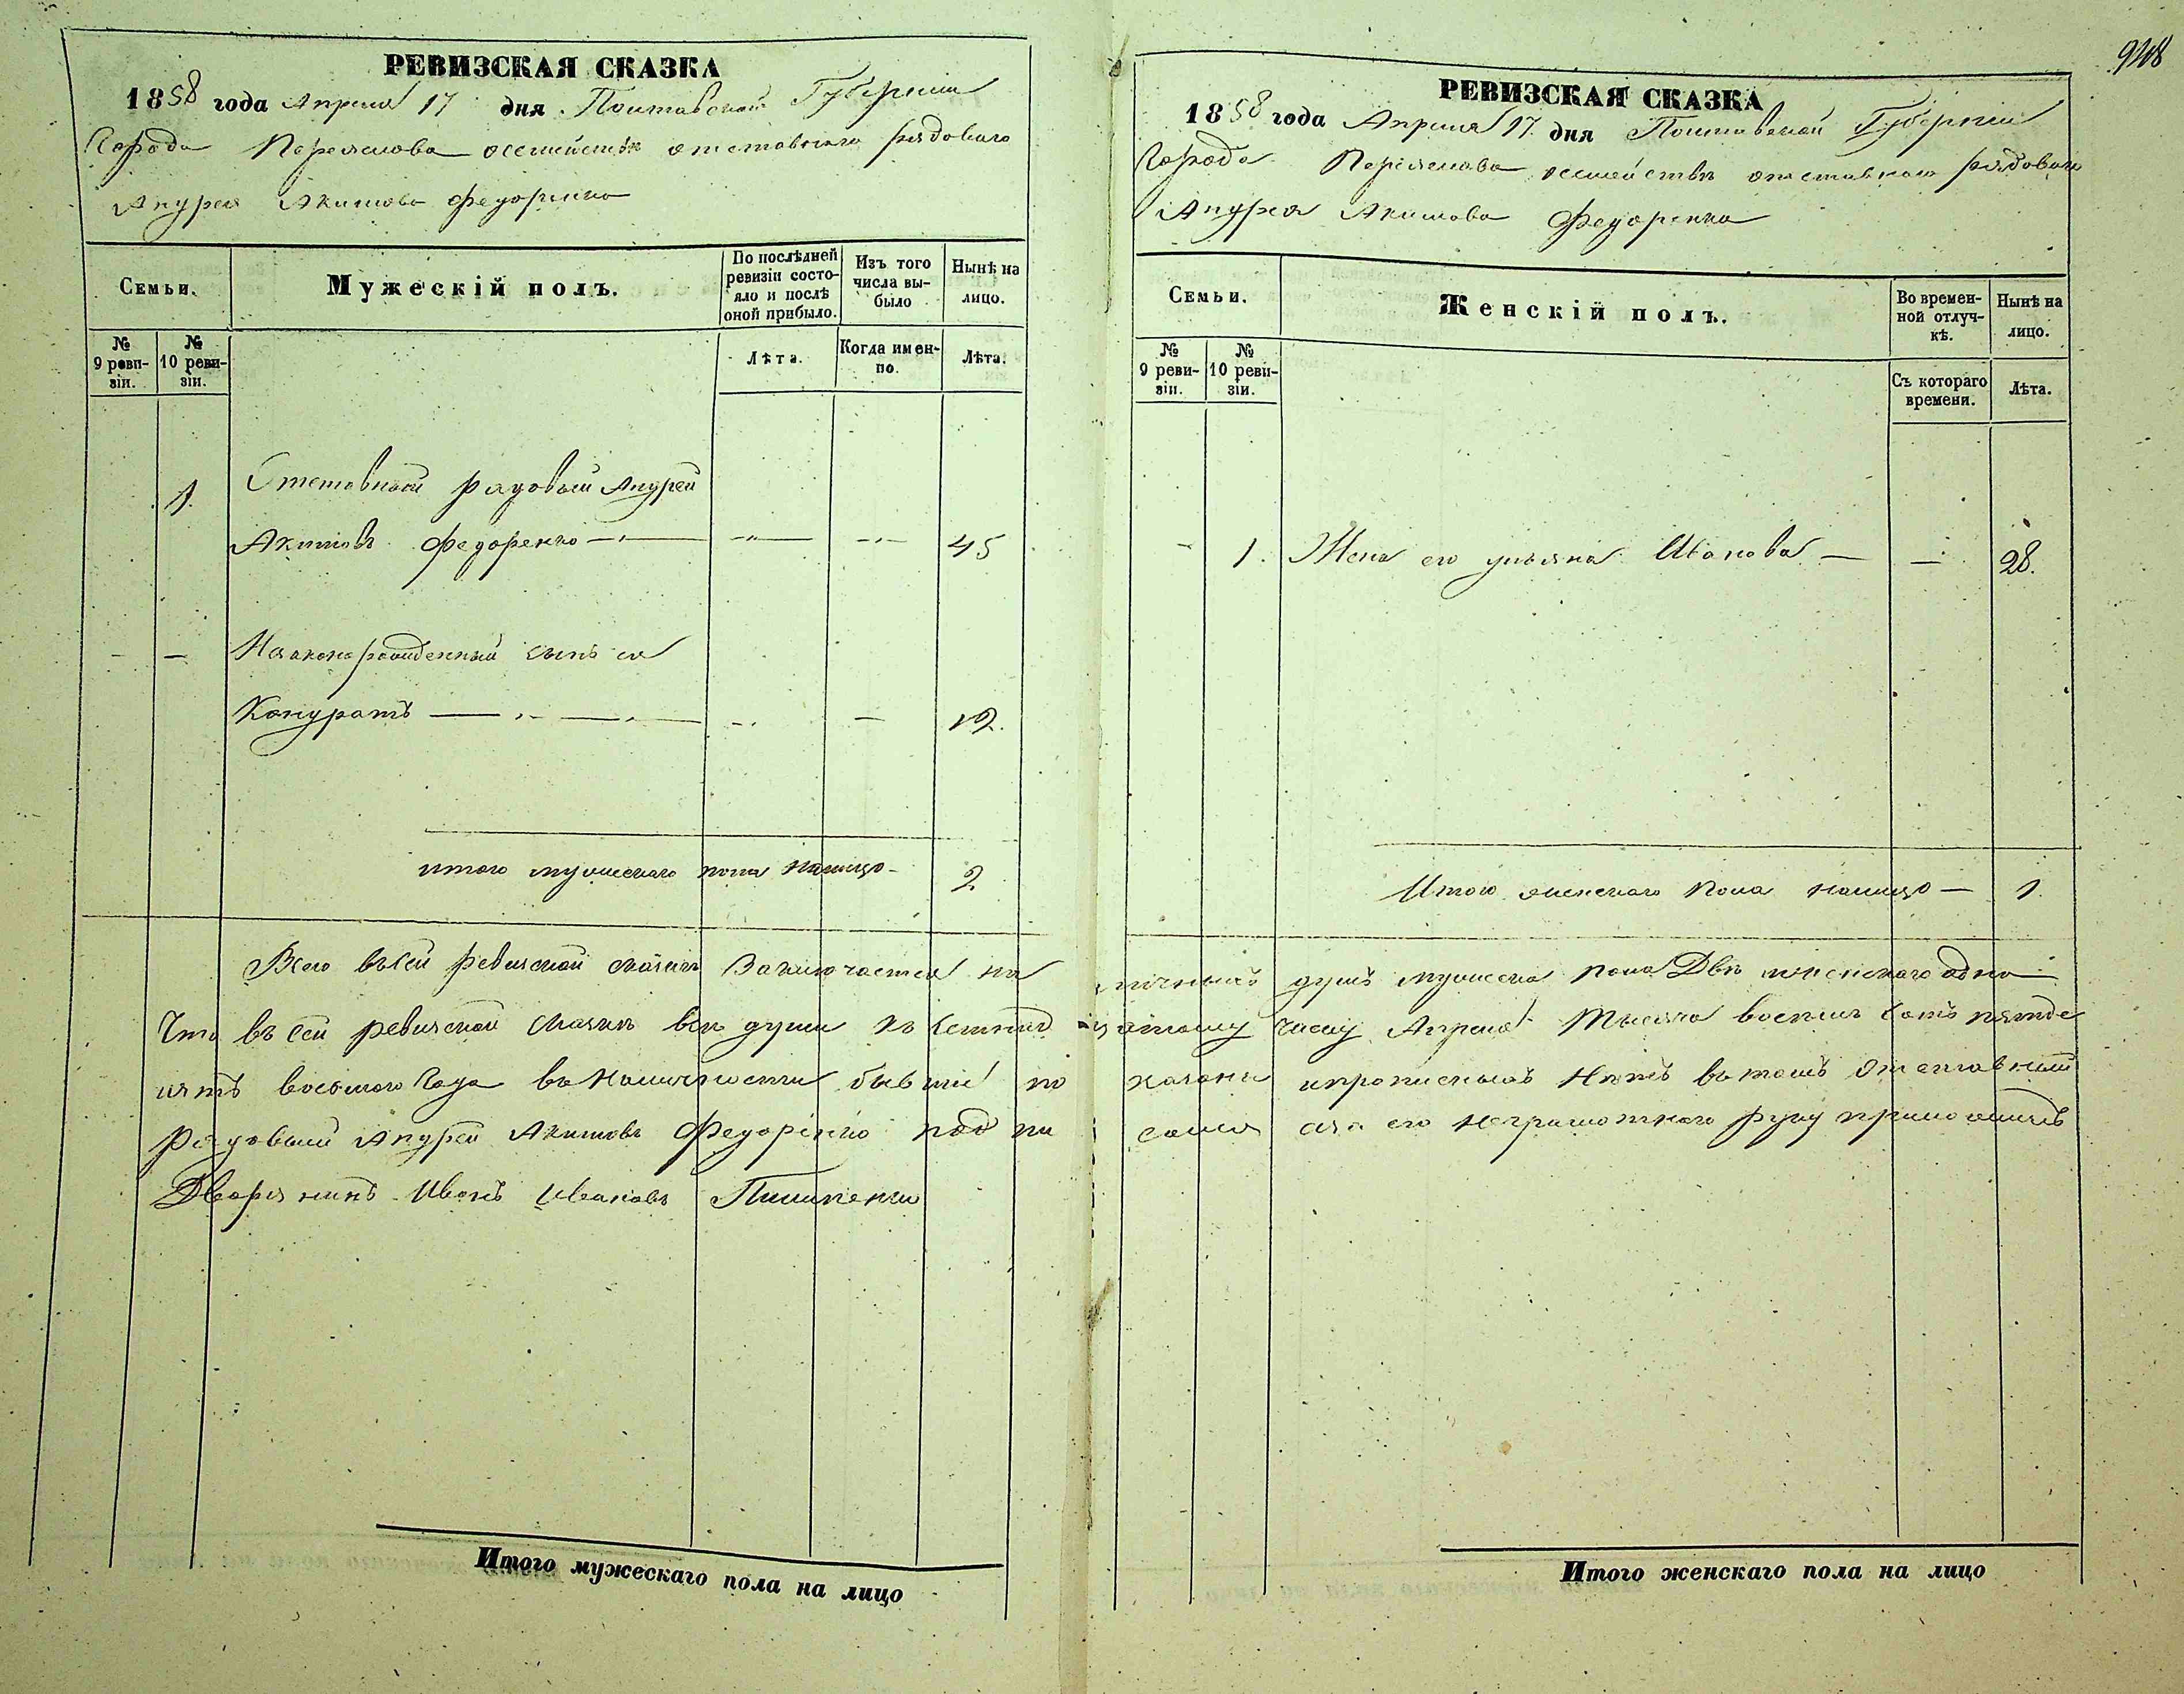 РЕВИЗСКАЯ СКАЗКА
1858 года Апреля 17 дня Полтавской Губернии
Города Переяслова осемействѣ отставнаго рядоваго
Андрея Акимова Федоренка
Семьи.
Мужескій полъ.
По послѣдней ревизіи состояло и послѣ оной прибыло.
Изъ того числа выбыло
Нынѣ на лицо.
№ 9 ревизіи.
№ 10 ревизіи.
Лѣта.
Когда именно.
Лѣта.
1. Отставной рядовый Андрей
Акимовъ Федоренко — — — 45
— — Незаконорожденный сынъ ея
Кондратъ — — — 12.
итого мужескаго пола налицо — 2
РЕВИЗСКАЯ СКАЗКА
948
1858 года Апреля 17. дня Полтавской Губернии
Города Переяслава осемействѣ отставнаго рядоваго
Андрея Акимова Федоренка
Семьи.
Женскій полъ.
Во временной отлучкѣ.
Нынѣ на лицо.
№ 9 ревизіи.
№ 10 ревизіи.
Съ котораго времени.
Лѣта.
- 1. Жена его Ульяна Иванова — — 28.
Итого женскаго пола налицо — 1.
Всего въсей ревизской сказкѣ Заключается наличныхъ душъ мужеска пола Двѣ женскаго одна
Что въ сей ревизской сказкѣ всѣ души къ семнадцатому числу Апреля Тысяча восемь сотъ пятде
сятъ восьмого Года въ наличности бывшие показаны ипрописныхъ Нѣтъ вътомъ Отставный
Рядовый Андрей Акимовъ Федоренко подписался аза его неграмотнаго руку приложилъ
Дворянинъ Иванъ Ивановъ
Итого мужескаго пола на лицо
Итого женскаго пола на лицо